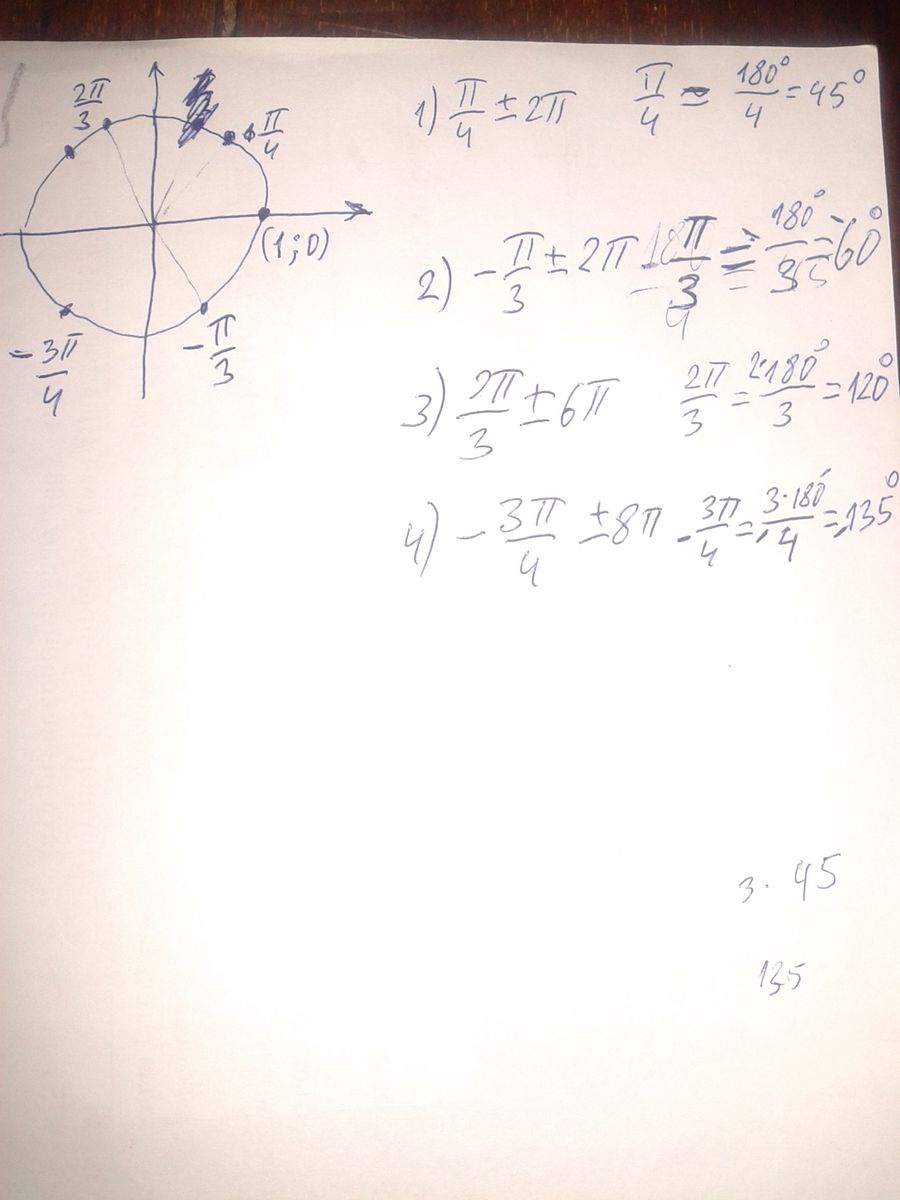 2π/3
π/4
(1;0)
-3π/4
-π/3
1) π/4 ± 2π π/4 = 180°/4 = 45°
2) -π/3 ± 2π -π/3 = 180°/3 = -60°
3) 2π/3 ± 6π 2π/3 = 2·180°/3 = 120°
4) -3π/4 ± 8π -3π/4 = -3·180°/4 = -135°
3. 45
135